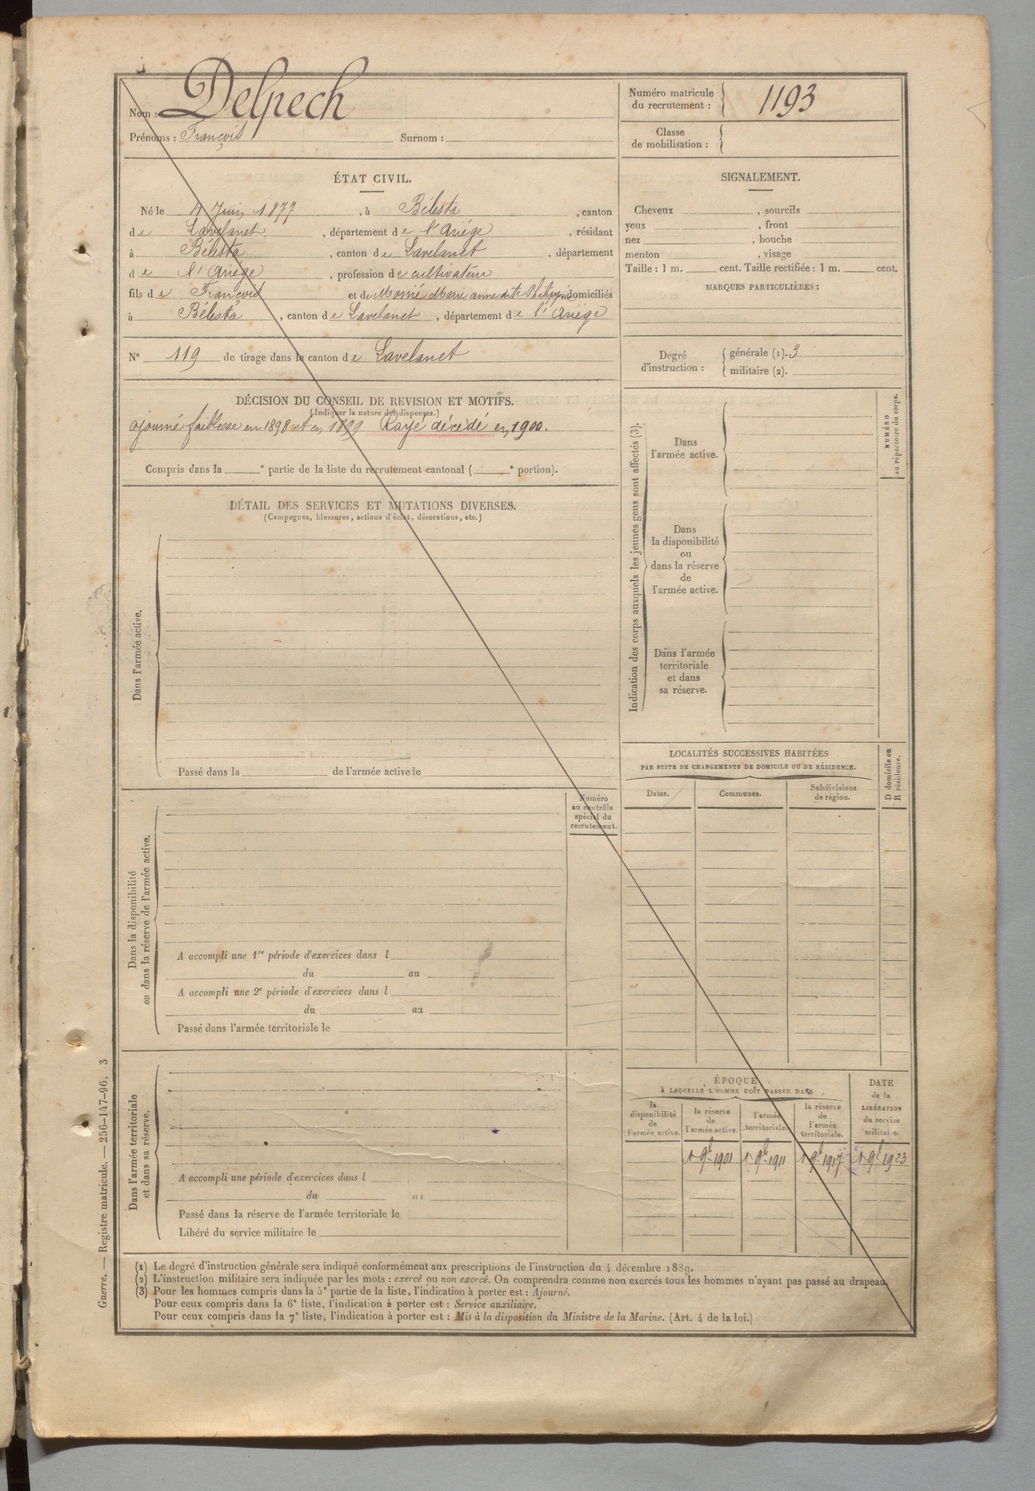 Nom : Delpech
Prénoms : François Surnom :
Numéro matricule du recrutement : 1193
Classe de mobilisation :
ÉTAT CIVIL.
Né le 4 Juin 1877, à Bélesta, canton
de Lavelanet, département de l'Ariége, résidant
à Bélesta, canton de Lavelanet, département
de l'Ariége, profession de cultivateur
fils de François et de Marie anne dite domiciliés
à Bélesta, canton de Lavelanet, département de l'Ariége
N° 119 de tirage dans le canton de Lavelanet
SIGNALEMENT.
Cheveux , sourcils
yeux , front
nez , bouche
menton , visage
Taille : 1 m. cent. Taille rectifiée : 1 m. cent.
MARQUES PARTICULIÈRES :
Degré d'instruction : générale (1). 3
militaire (2).
DÉCISION DU CONSEIL DE REVISION ET MOTIFS.
(Indiquer la nature des dispenses.)
ajourné faiblesse en 1898 et en 1899 Rayé décédé en 1900.
Compris dans la e partie de la liste du recrutement cantonal ( e portion).
DÉTAIL DES SERVICES ET MUTATIONS DIVERSES.
(Campagnes, blessures, actions d'éclat, décorations, etc.)
Dans l'armée active.
Passé dans la de l'armée active le
Numéro
au contrôle
spécial du
recrutement.
Dans la disponibilité
ou dans la réserve de l'armée active.
A accompli une 1re période d'exercices dans l
du au
A accompli une 2e période d'exercices dans l
du au
Passé dans l'armée territoriale le
Dans l'armée territoriale
et dans sa réserve.
A accompli une période d'exercices dans l
du au
Passé dans la réserve de l'armée territoriale le
Libéré du service militaire le
Indication des corps auxquels les jeunes gens sont affectés (3).
Dans
l'armée active.
Dans
la disponibilité
ou
dans la réserve
de
l'armée active.
Dans l'armée
territoriale
et dans
sa réserve.
NUMÉRO
au répertoire du corps.
LOCALITÉS SUCCESSIVES HABITÉES
PAR SUITE DE CHANGEMENTS DE DOMICILE OU DE RÉSIDENCE.
Dates. Communes. Subdivisions de région.
D domicile ou
R résidence.
ÉPOQUE
À LAQUELLE L'HOMME DOIT PASSER DANS
la disponibilité de l'armée active.
la réserve de l'armée active.
l'armée territoriale.
la réserve de l'armée territoriale.
DATE de la LIBÉRATION du service militaire.
1 9b 1901 1 9b 1911 1 9b 1917 1 9b 1923
(1) Le degré d'instruction générale sera indiqué conformément aux prescriptions de l'instruction du 4 décembre 1889.
(2) L'instruction militaire sera indiquée par les mots : exercé ou non exercé. On comprendra comme non exercés tous les hommes n'ayant pas passé au drapeau.
(3) Pour les hommes compris dans la 5e partie de la liste, l'indication à porter est : Ajourné.
Pour ceux compris dans la 6e liste, l'indication à porter est : Service auxiliaire.
Pour ceux compris dans la 7e liste, l'indication à porter est : Mis à la disposition du Ministre de la Marine. (Art. 4 de la loi.)
Guerre. — Registre matricule. — 256-147-96. 3